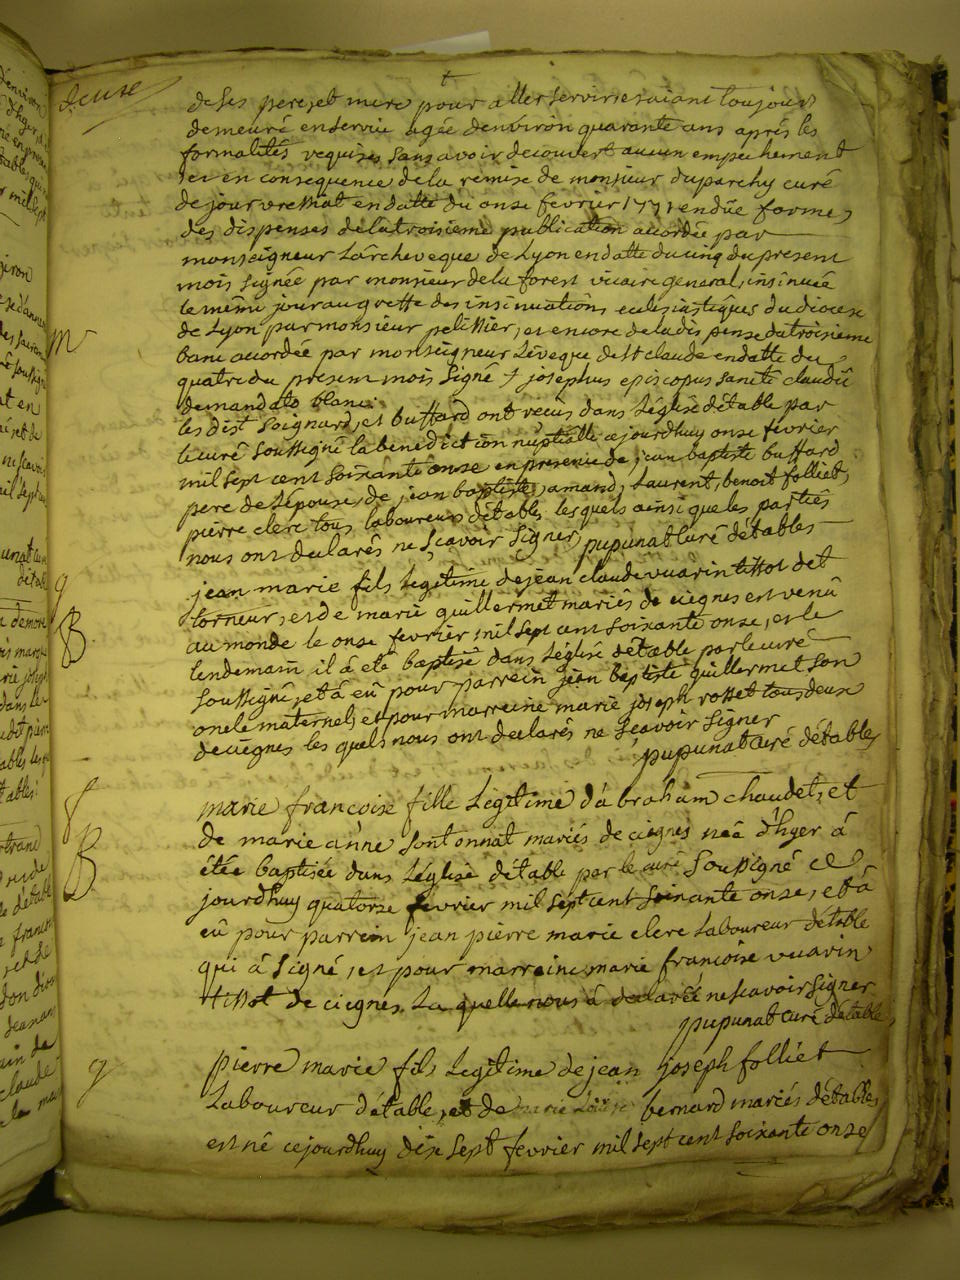 de ses pere, et mere pour aller servir, et aiant toujours
demeuré en service agée d'environ quarante ans aprés les
formalités requises sans avoir decouvert aucun empechement
et en consequence de la remise de monsieur duparchy curé
de jour en datte du onse fevrier 1771 en düe forme,
des dispenses de la troisieme publication accordée par
monseigneur L'archeveque de Lyon en datte du cinq du present
mois signée par monsieur de la forest vicaire general, insinuée
le même jour au greffe des insinuations eclesiastiques du diocese
de Lyon par monsieur pelissier, et encore de la dispense du troisieme
banc accordée par monseigneur L'éveque de st claude en datte du
quatre du present mois signé † josephus episcopus sancti claudii
de mandato blanc:
les dist Soignard, et buffard ont recus dans L'église d'étable par
le curé soussigné la benediction nuptialle cejourdhuy onse fevrier
mil sept cent soixante onse en presence de jean baptiste buffard
pere de L'épouse, de jean baptiste, amand, Laurent, benoit folliet,
pierre clerc tous laboureurs d'étables lesquels ainsi que les parties
nous ont declarés ne sçavoir signer, pupunat curé détables
jean marie fils Legitime de jean claude vuarin tissot det
torneur, et de marie quillermet mariés de ciegnes est venû
au monde le onse fevrier mil sept cent soixante onse, et le
lendemain il â eté baptisé dans L'église d'étable par le curé
soussigné, et â eû pour parrein jean baptiste quillermet son
oncle maternel, et pour marreine marie joseph rosset tous deux
de ciegnes les quels nous ont declarés ne scavoir signer
pupunat curé détables
marie francoise fille Légitime d'abraham chaudet, et
de marie anne sontonnat mariés de ciegnes née d'hyer â
étée baptisée dans L'église d'étable par le curé soussigné ce
jourdhuy quatorse fevrier mil sept cent soixante onse, et â
eû pour parrein jean pierre marie clerc Laboureur détable
qui â signé, et pour marreine marie francoise vuarin
tissot de ciegnes La quelle nous â declarée ne scavoir signer
pupunat curé détable
pierre marie fils Legitime de jean joseph folliet
Laboureur d'étable, et de marie Louise bernard mariés détables
est né cejourdhuy dix sept fevrier mil sept cent soixante onse